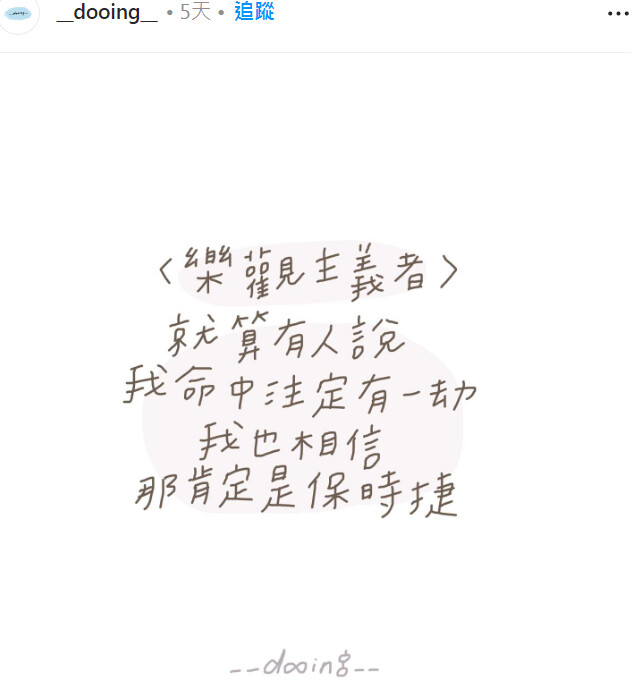 __dooing__ • 5天 • 追蹤
〈樂觀主義者〉
就算有人說
我命中注定有一劫
我也相信
那肯定是保時捷
--dooing--